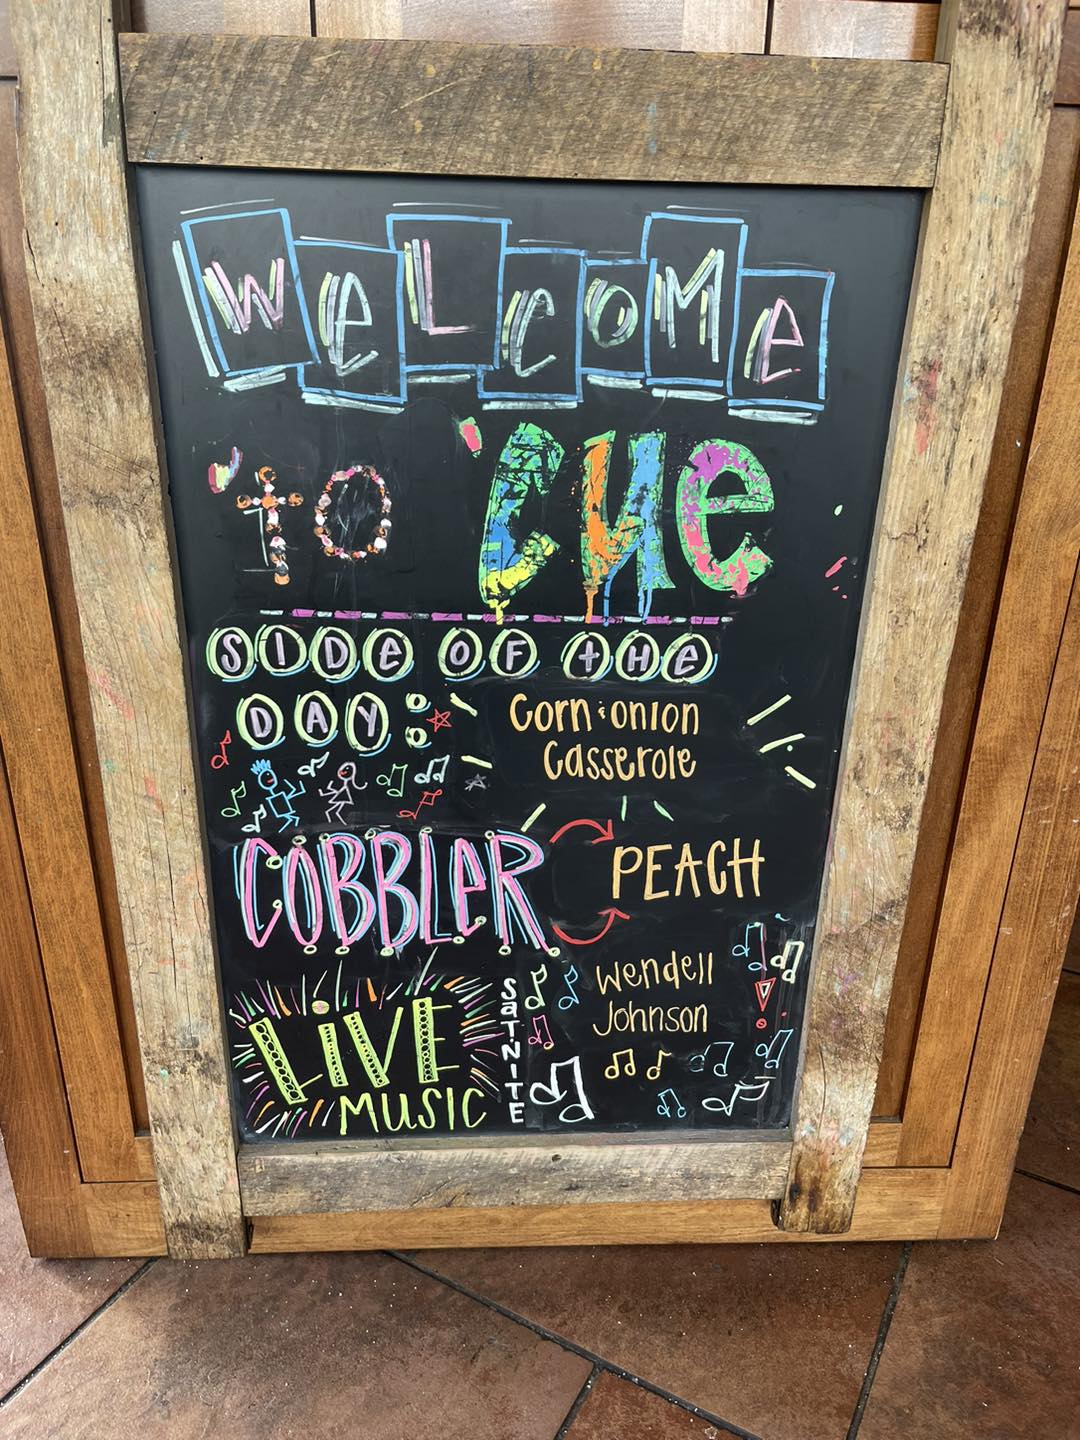 WeLcoMe
to 'cue
SIDe OF tHe
DAY:
Corn & onion
Casserole
COBBLeR
PEACH
LiVE
MUSIC
SaT. NITE
Wendell
Johnson